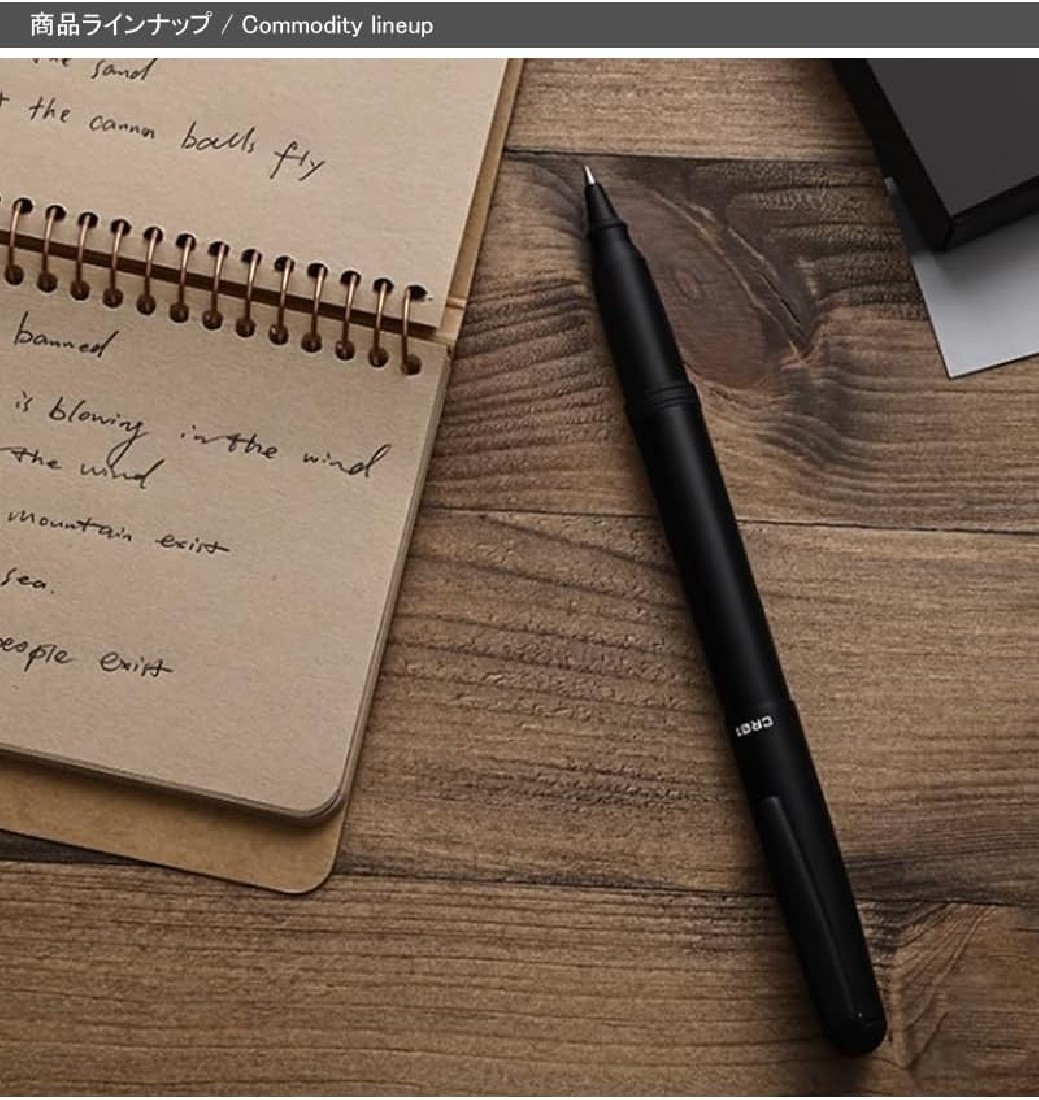 商品ラインナップ / Commodity lineup
the sand
the cannon balls fly
banned
is blowing in the wind
the wind
mountain exist
sea.
people exist
CR01